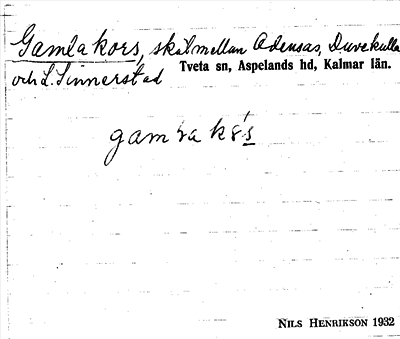 Gamla kors, skäl mellan Adensås, Duvekulla
och L. Sinnerstad
Tveta sn, Aspelands hd, Kalmar län.
NILS HENRIKSON 1932